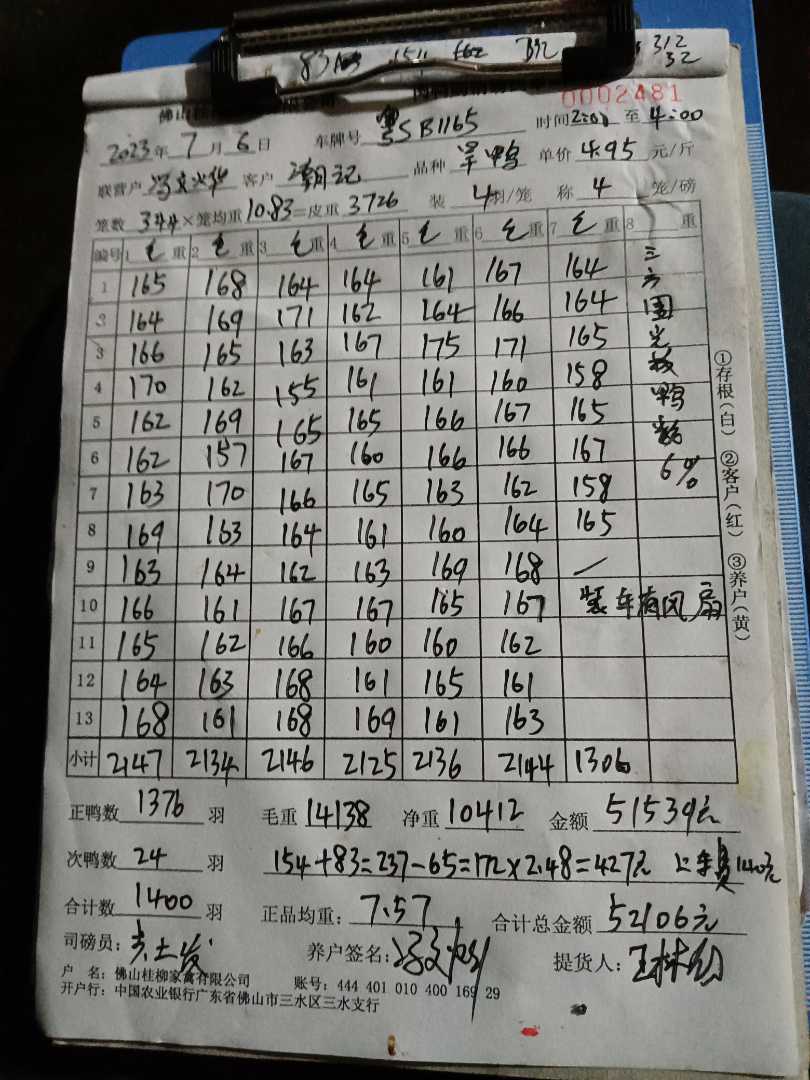 312
32
0002481
2023年7月6日 车牌号 粤SB1165 时间2:00至4:00
联营户 冯文火华 客户 潮记 品种 旱鸭 单价4.95元/斤
笼数344×笼均重10.83=皮重3726 装4羽/笼 称4笼/磅
编号 1毛重 2毛重 3毛重 4毛重 5毛重 6毛重 7毛重 8 重
1 165 168 164 164 161 167 164
2 164 169 171 162 164 166 164
3 166 165 163 167 175 171 165
4 170 162 155 161 161 160 158
5 162 169 165 165 166 167 165
6 162 157 167 160 166 166 167
7 163 170 166 165 163 162 158
8 169 163 164 161 160 164 165
9 163 164 162 163 169 168 —
10 166 161 167 167 165 167 装车有风扇
11 165 162 166 160 160 162
12 164 163 168 161 165 161
13 168 161 168 169 161 163
小计 2147 2134 2146 2125 2136 2144 1306
6%
①存根(白) ②客户(红) ③养户(黄)
正鸭数1376羽 毛重14138 净重10412 金额51539元
次鸭数24羽 154+83=237-65=172×2.48=427元 上车费140元
合计数1400羽 正品均重:7.57 合计总金额52106元
司磅员: 养户签名: 提货人:
户 名:佛山桂柳家禽有限公司 账号:444 401 010 400 169 29
开户行:中国农业银行广东省佛山市三水区三水支行